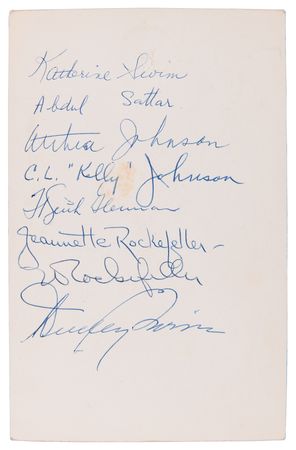 Katherine Swim
Abdul Sattar
Althea Johnson
C.L. "Kelly" Johnson
Jeannette Rockefeller -
Rockefeller
Dudley Swim